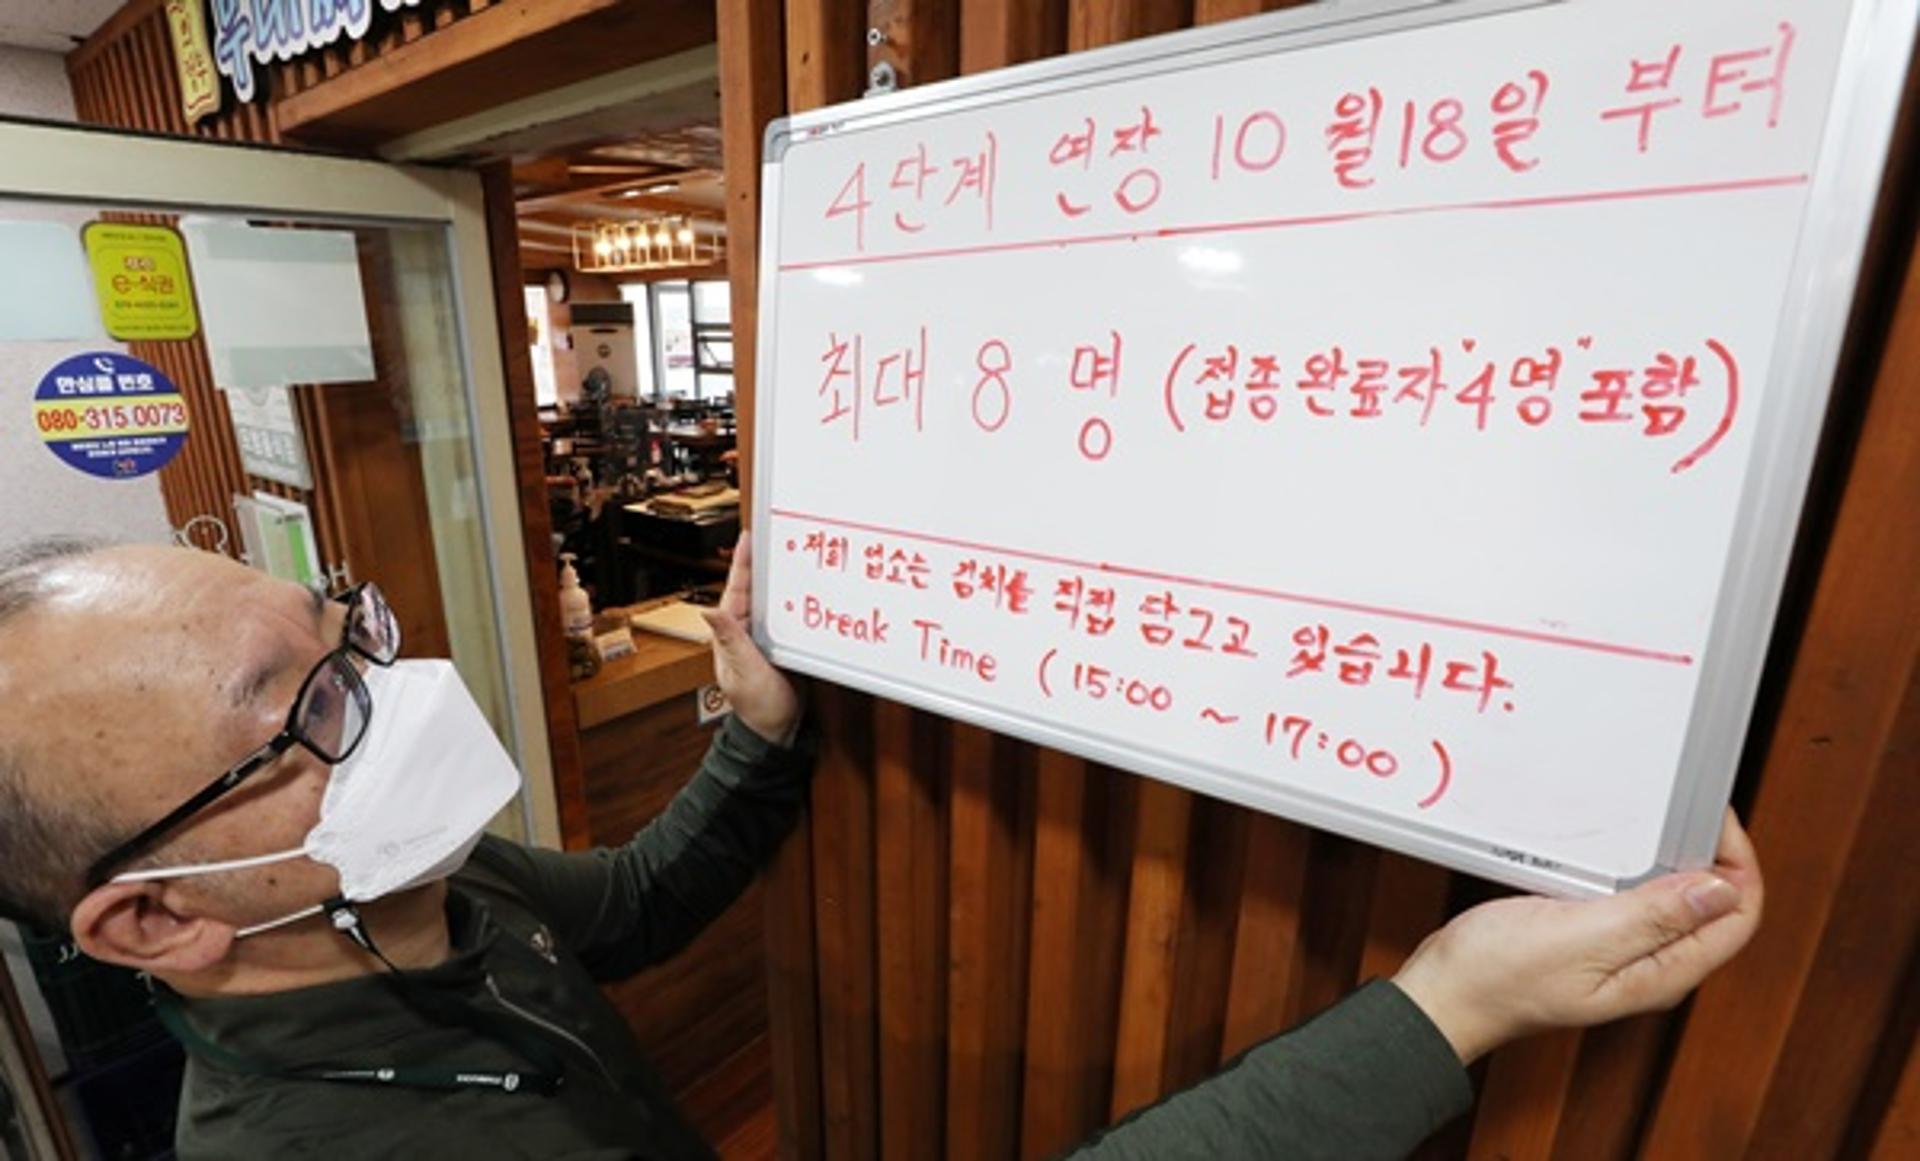 4단계 연장 10월18일 부터
최대 8 명 (접종완료자 "4명" 포함)
• 저희 업소는 김치를 직접 담그고 있습니다.
• Break Time (15:00 ~ 17:00)
e-식권
안심콜 번호
080-315 0073